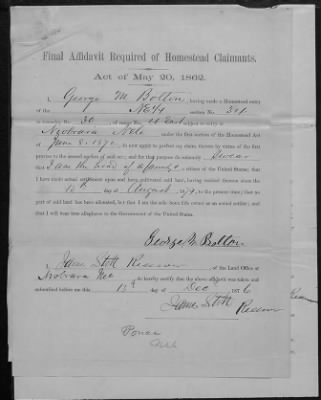 Final Affidavit Required of Homestead Claimants.
Act of May 20, 1862.
I, George M. Bolton, having made a Homestead entry
of the NE 1/4 section No.
in township No. 30, of range No. East subject to entry at
Niobrara Neb under the first section of the Homestead Act
of June 8, 1872, do now apply to perfect my claim thereto by virtue of the first
proviso to the second section of said act; and for that purpose do solemnly Swear
that I am the head of a family a citizen of the United States; that I
have made actual settlement upon and have cultivated said land, having resided thereon since the
10th day of August, 1874, to the present time; that no
part of said land has been alienated, but that I am the sole bona fide owner as an actual settler; and
that I will bear true allegiance to the Government of the United States.
George M. Bolton
I, James Stott Receiver of the Land Office at
Niobrara Neb do hereby certify that the above affidavit was taken and
subscribed before me this 13th day of Dec 1876
James Stott
Receiver
Ponca
Neb